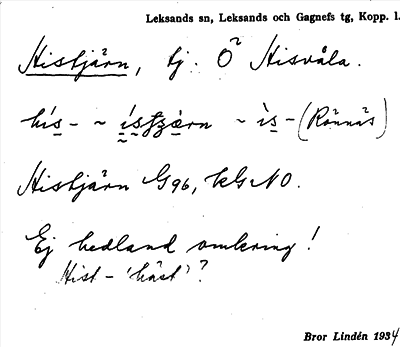 Leksands sn, Leksands och Gagnefs tg, Kopp. l.
Histjärn, tj. Ö Hisvåla.
hís- ~ ístjärn ~ ìs- (Rönnäs)
Histjärn G96, kG NO.
Ej hedland omkring!
Hist- 'häst'?
Bror Lindén 1934